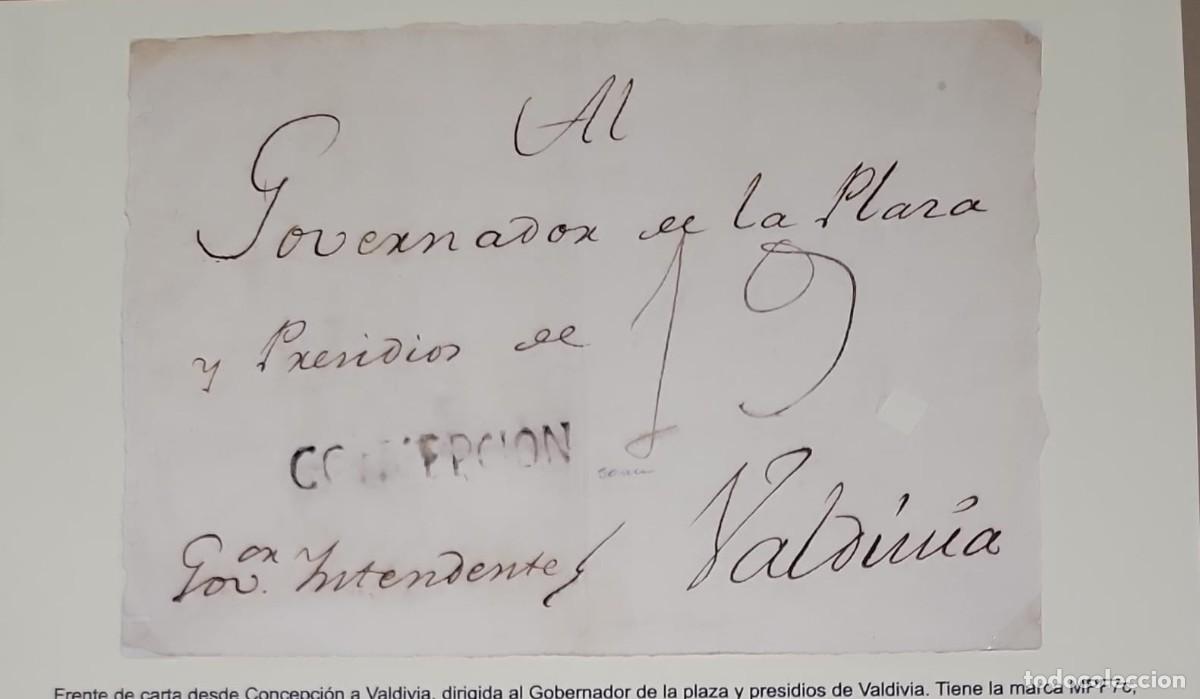 Al
Governador de la Plaza
19
y Presidios de
CONCEPCION
Valdivia
Gov.or Yntendente
Frente de carta desde Concepción a Valdivia, dirigida al Gobernador de la plaza y presidios de Valdivia. Tiene la marca
todocoleccion